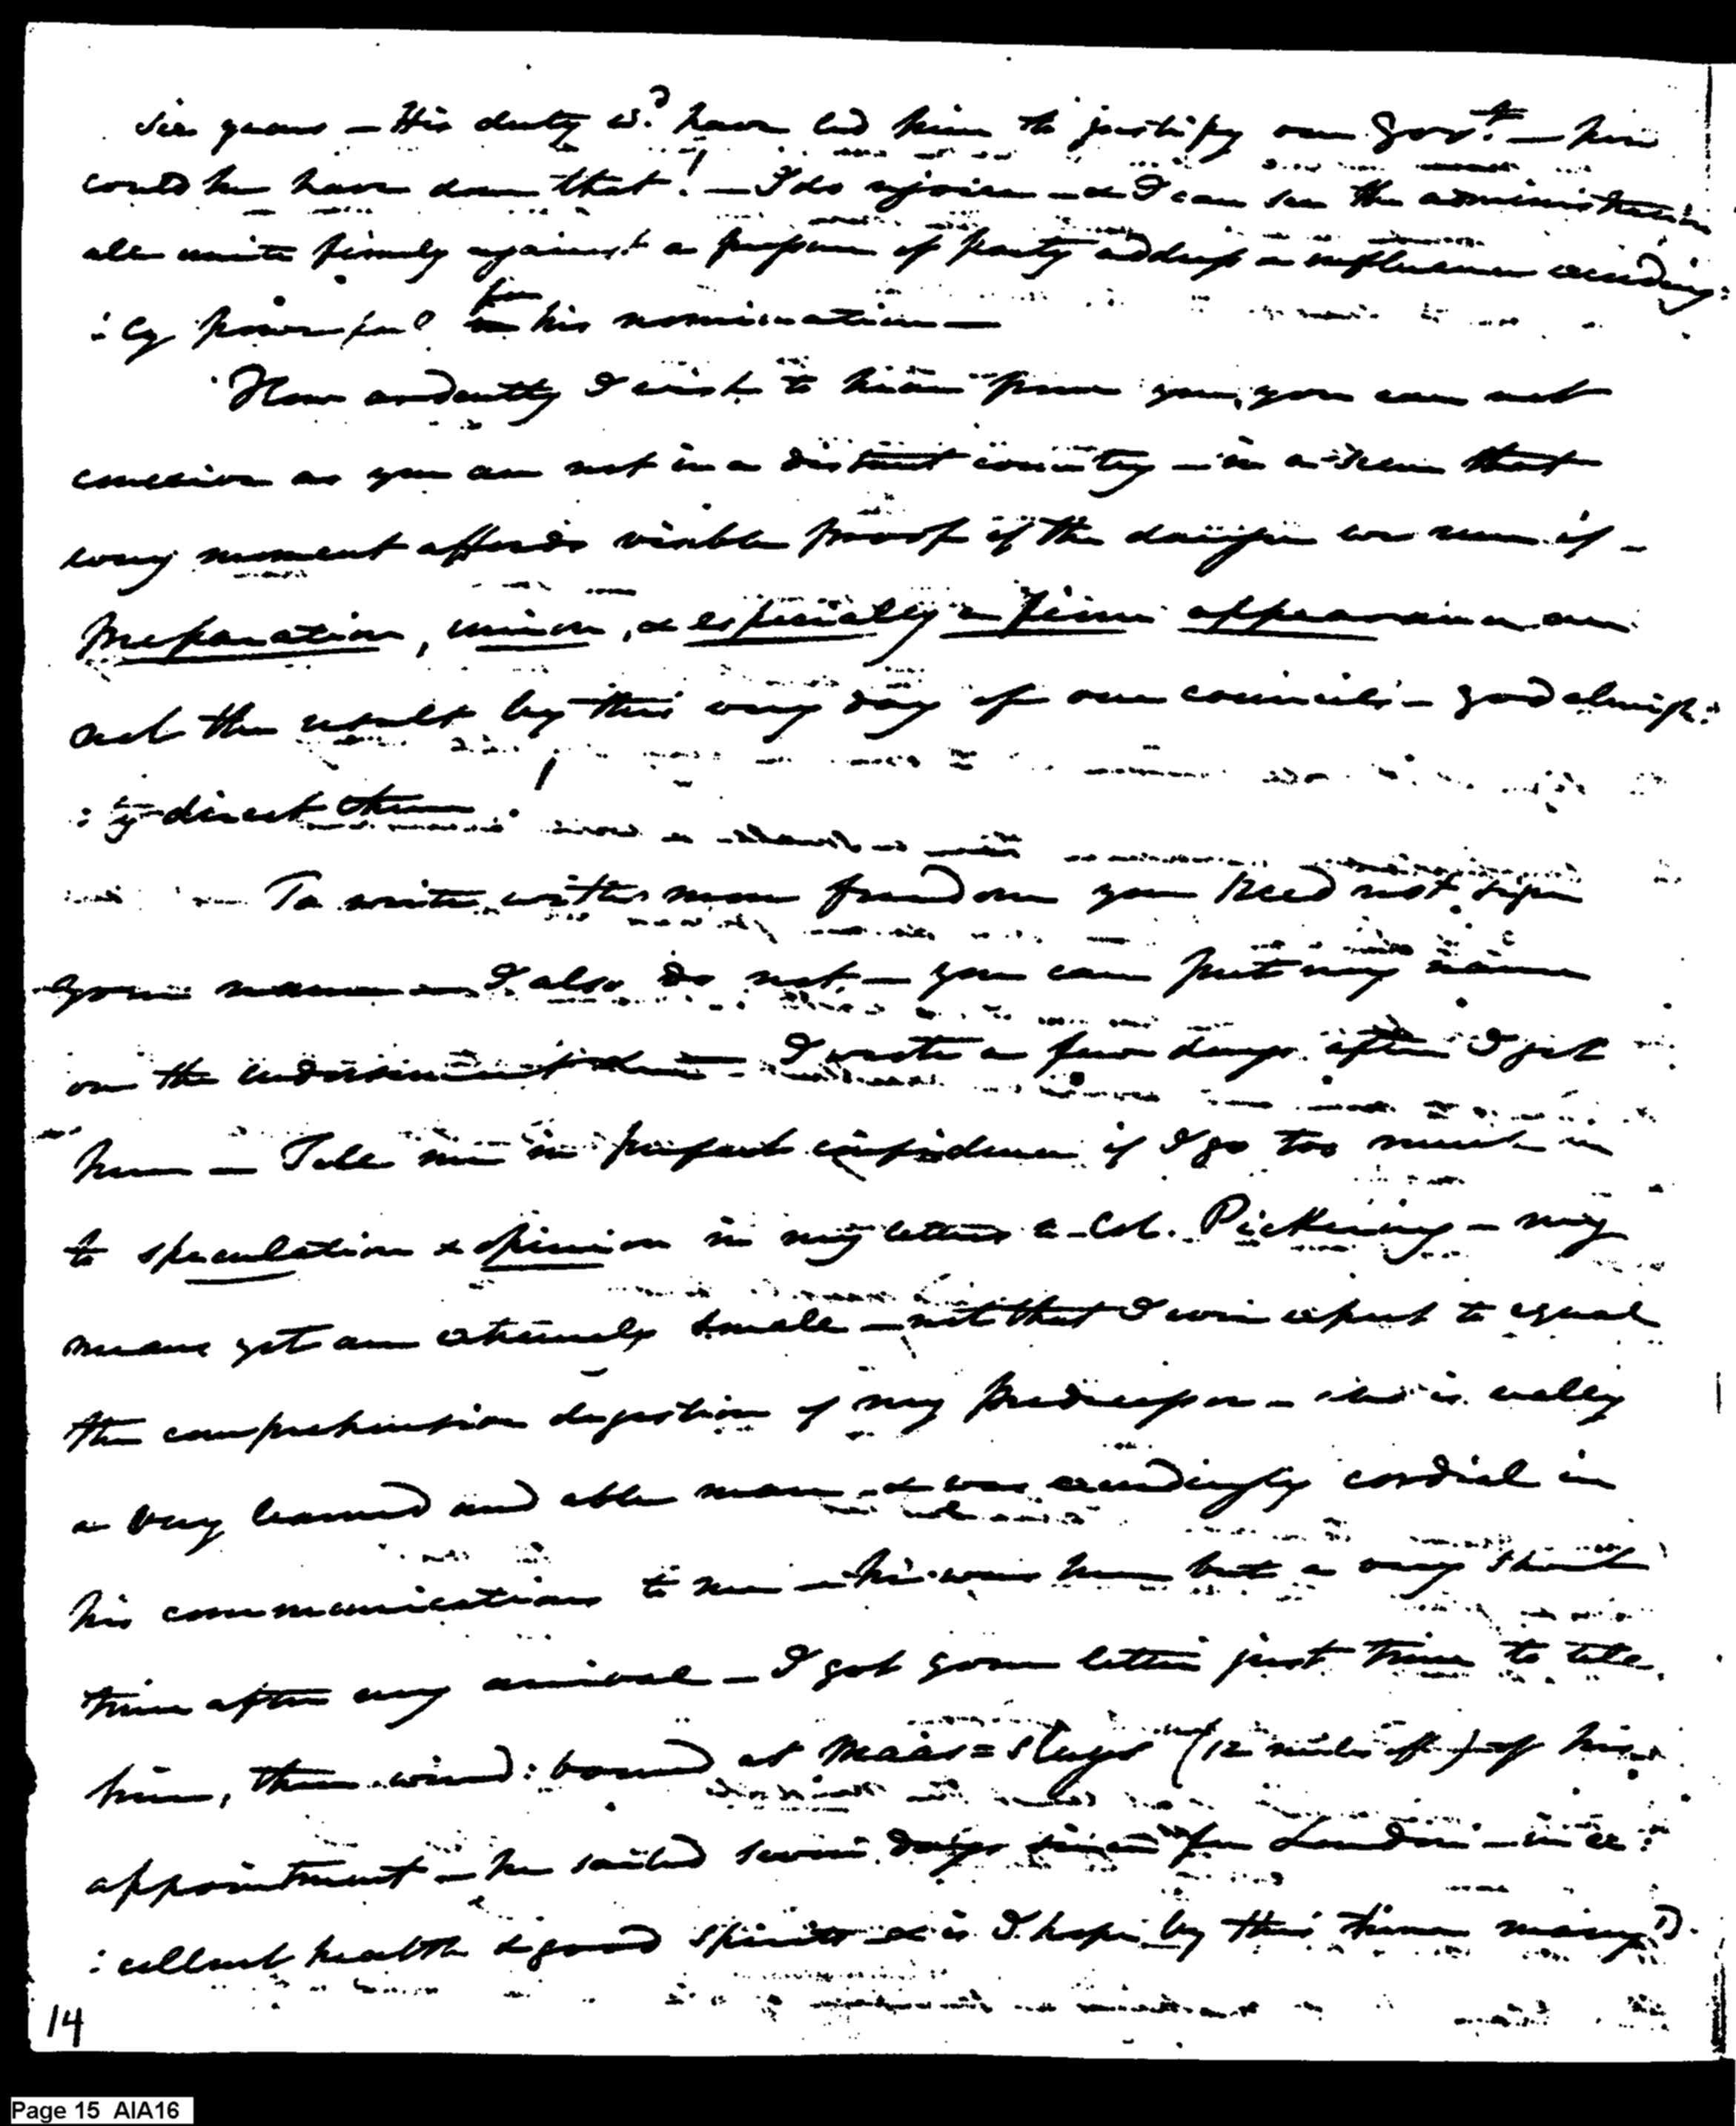 six years — His duty wd. have led him to justify our Govt. — how
could he have done that! — I do rejoice — & I can see the administration
all unite firmly against a pressure of party address & influence exceeding:
:ly powerful for his nomination —
How ardently I wish to hear from you, you can not
conceive as you are not in a distant country — in a scene that
every moment affords visible proof of the danger we run if —
Preparation, union, & especially a firm appearance are
not the result by this very day of our councils — god almigh:
:ty direct them!
To write with more freedom you need not sign
your name — I also do not — you can put my name
on the indorsement — I wrote a few days after I got
here — Tell me in perfect confidence if I go too much in
to speculation & opinion in my letters to Col. Pickering — my
means yet are extremely small — not that I ever expect to equal
the comprehensive digestion of my predecessor — who is really
a very learned and able man — & was exceedingly cordial in
his communications to me — he was here but a very short
time after my arrival — I got your letter just time to tell
him, then wind:bound at Maas=sluys (12 miles off) of his
appointment — he sailed seven days since for London — in ex:
:cellent health & good spirits & is I hope by this time marryd.
14
Page 15 AIA16